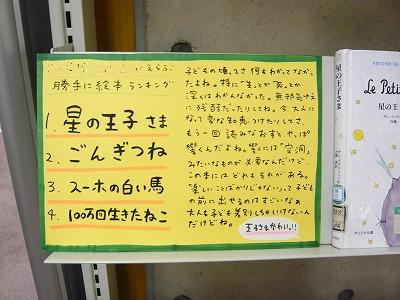 がえらぶ
勝手に絵本ランキング
1. 星の王子さま
2. ごんぎつね
3. スーホの白い馬
4. 100万回生きたねこ
子どもの頃ってさ 何もわかってなかっ
たよね。特に「生」とか「死」とか
深くはわかんなかった。無邪気ゆえ
に残酷だったりしてね。今、大人に
なって変な知恵つけたりしてさ、
もう一回 読みなおすと やっぱ
響くんだよね。響くには「空洞」
みたいなものが必要なんだけど
この本には どれも それがある。
「楽しいことばかりじゃない」って子ども
の前に出せるのはすごいなぁ
大人も子どもも差別しちゃいけないん
だけどね。
王子さまかわいい!!
ANTOINE DE
星の王子さま
Le Petit
星の王子
オリジナル版